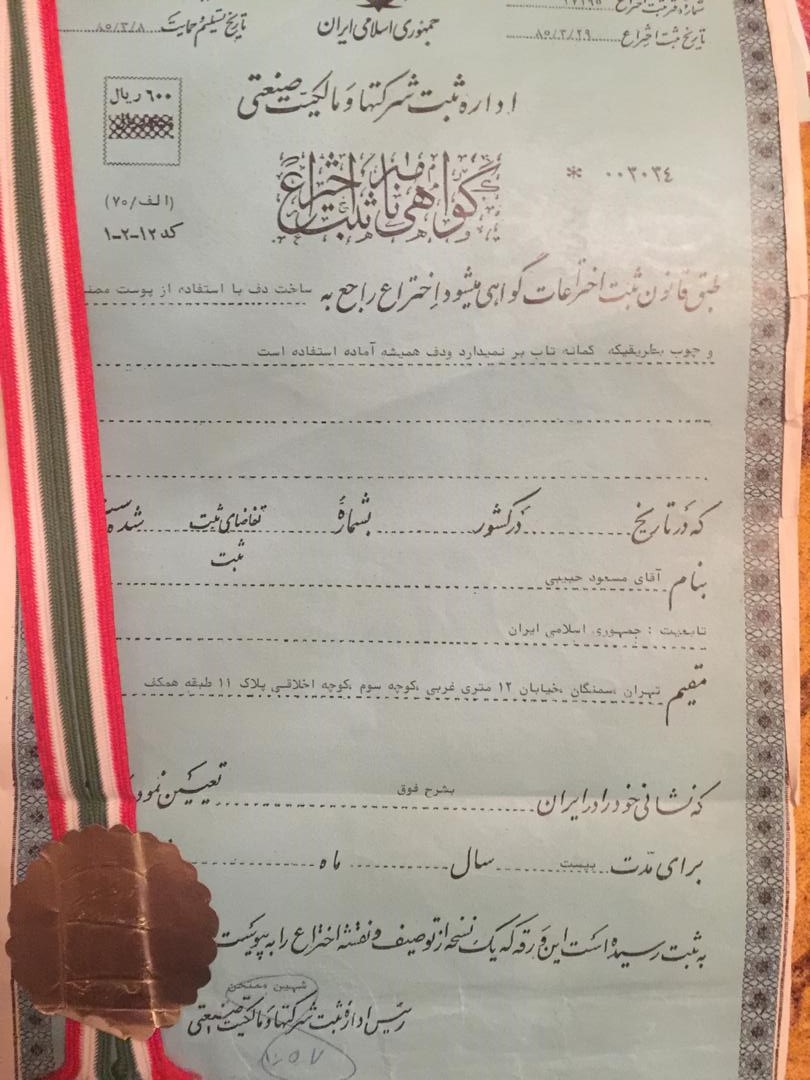 شماره ثبت اختراع ۳۲۱۹۵
جمهوری اسلامی ایران
تاریخ ثبت اختراع ۸۵/۳/۲۹
تاریخ تسلیم و حمایت ۸۵/۳/۸
اداره ثبت شرکتها و مالکیت صنعتی
۶۰۰ ریال
گواهی نامه ثبت اختراع
۰۰۳۰۳۴ *
(الف/۷۰)
کد ۱۲-۲-۱
طبق قانون ثبت اختراعات گواهی میشود اختراع راجع به ساخت دف با استفاده از پوست
و چوب بطریقیکه کمانه تاب بر نمیدارد ودف همیشه آماده استفاده است
که در تاریخ در کشور بشماره تقاضای ثبت شده
ثبت
بنام آقای مسعود حبیبی
تابعیت : جمهوری اسلامی ایران
مقیم تهران ،سمنگان ،خیابان ۱۲ متری غربی ،کوچه سوم ،کوچه اخلاقی پلاک ۱۱ طبقه همکف
که نشانی خود را در ایران بشرح فوق تعیین نموده
برای مدت بیست سال ماه
به ثبت رسیده است این ورقه که یک نسخه از توصیف و نقشه اختراع را به پیوست
شهین ممتحن
رئیس اداره ثبت شرکتها و مالکیت صنعتی